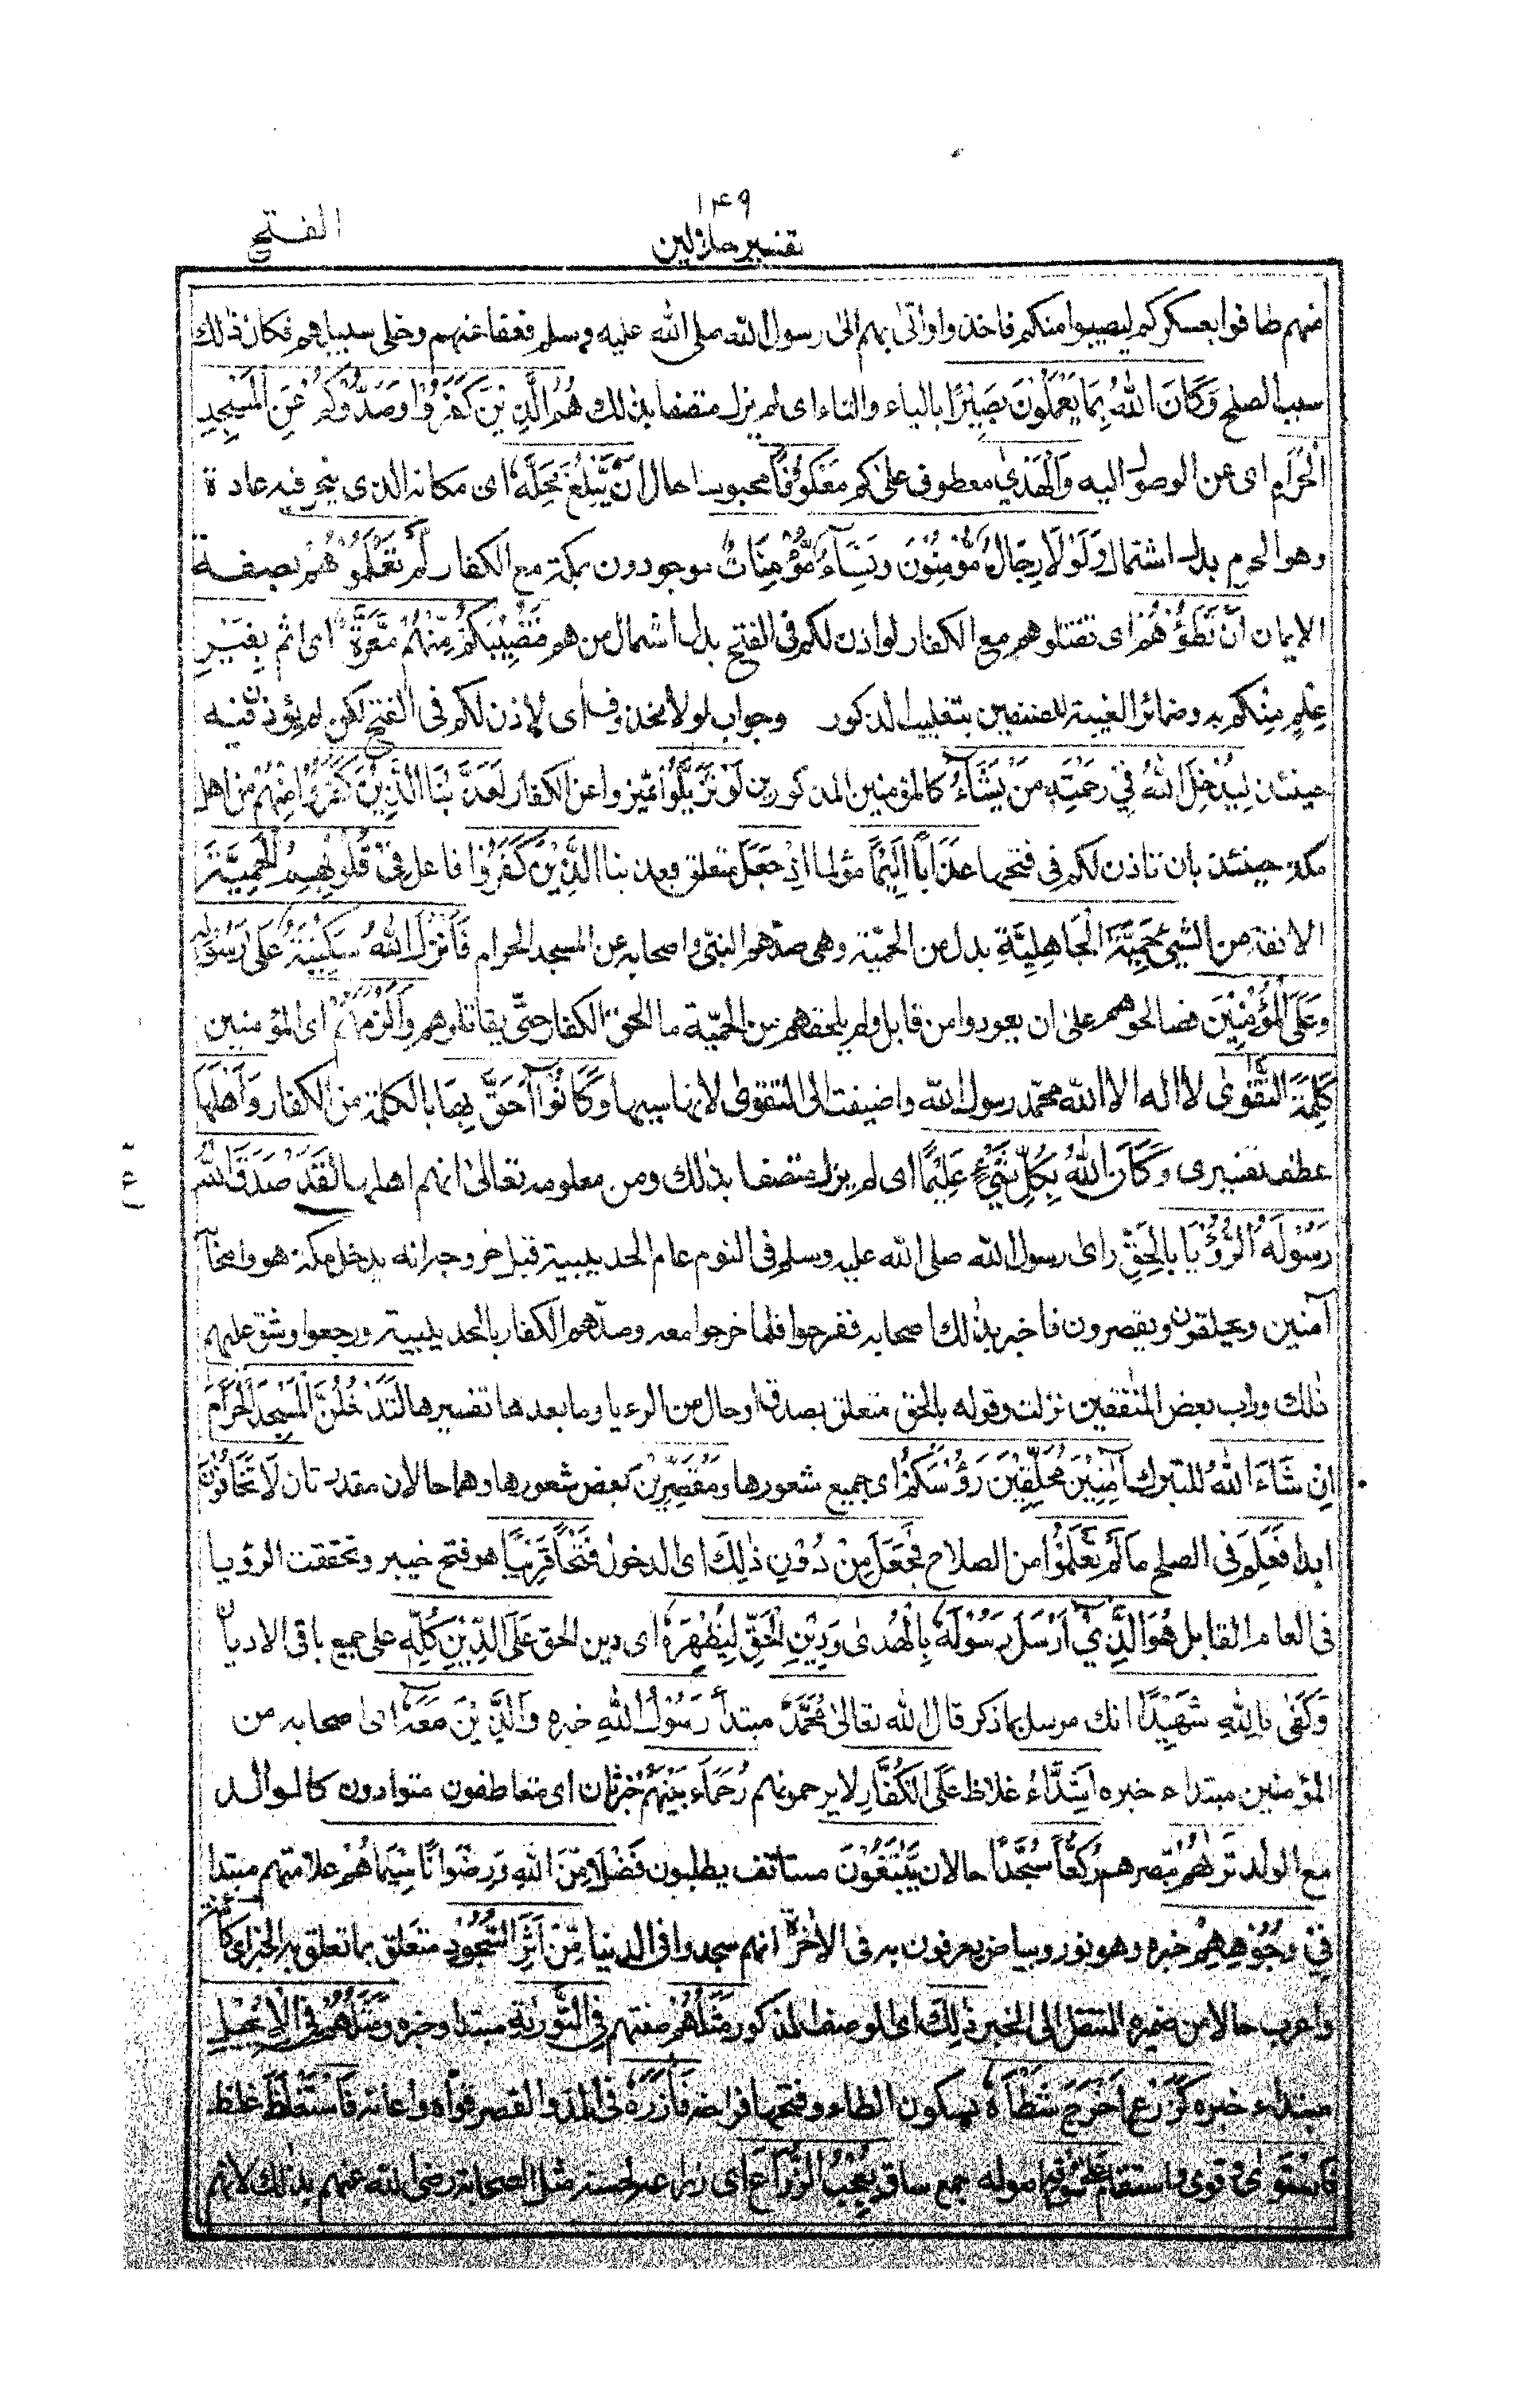 ١٤٩
الفتح
تفسير جلالين
منهم طافوا بعسكركم ليصيبوا منكم فاخذوا واوتى بهم الى رسول الله صلى الله عليه وسلم فعفا عنهم وخلى سبيلهم فكان ذلك
سبب الصلح وَكَانَ اللهُ بِمَا يَعْمَلُوْنَ بَصِيْرًا بالياء والتاء اى لم يزل متصفا بذلك هُمُ الَّذِيْنَ كَفَرُوْا وَصَدُّوْكُمْ عَنِ الْمَسْجِدِ
الْحَرَامِ اى عن الوصول اليه وَالْهَدْيَ معطوف على كم مَعْكُوْفًا محبوسا حال اَنْ يَّبْلُغَ مَحِلَّهٗ اى مكانه الذى ينحر فيه عادة
وهو الحرم بدل اشتمال وَلَوْلَا رِجَالٌ مُّؤْمِنُوْنَ وَنِسَآءٌ مُّؤْمِنَاتٌ موجودون بمكة مع الكفار لَّمْ تَعْلَمُوْهُمْ بصفة
الايمان اَنْ تَطَئُوْهُمْ اى تقتلوهم مع الكفار لو اذن لكم فى الفتح بدل اشتمال من هم فَتُصِيْبَكُمْ مِّنْهُمْ مَّعَرَّةٌ اى اثم بِغَيْرِ
عِلْمٍ منكم به وضمائر الغيبة للصنفين بتغليب الذكور وجواب لولا محذوف اى لاذن لكم فى الفتح لكن لم يؤذن فيه
حينئذ لِيُدْخِلَ اللهُ فِيْ رَحْمَتِهٖ مَنْ يَّشَآءُ كالمؤمنين المذكورين لَوْ تَزَيَّلُوْا تميزوا عن الكفار لَعَذَّبْنَا الَّذِيْنَ كَفَرُوْا مِنْهُمْ من اهل
مكة حينئذ بان ناذن لكم فى فتحها عَذَابًا اَلِيْمًا مؤلما اِذْ جَعَلَ متعلق بعذبنا الَّذِيْنَ كَفَرُوْا فاعل فِيْ قُلُوْبِهِمُ الْحَمِيَّةَ
الانفة من الشيئ حَمِيَّةَ الْجَاهِلِيَّةِ بدل من الحميّة وهى صدهم النبى واصحابه عن المسجد الحرام فَاَنْزَلَ اللهُ سَكِيْنَتَهٗ عَلٰى رَسُوْلِهٖ
وَعَلَى الْمُؤْمِنِيْنَ فصالحوهم على ان يعودوا من قابل ولم يلحقهم من الحميّة ما لحق الكفار حتّى يقاتلوهم وَاَلْزَمَهُمْ اى المؤمنين
كَلِمَةَ التَّقْوٰى لا اله الا الله محمد رسول الله واضيفت الى التقوى لانها سببها وَكَانُوْٓا اَحَقَّ بِهَا بالكلمة من الكفار وَاَهْلَهَا
عطف تفسيرى وَكَانَ اللهُ بِكُلِّ شَيْءٍ عَلِيْمًا اى لم يزل متصفا بذلك ومن معلومه تعالى انهم اهلها لَقَدْ صَدَقَ اللهُ
رَسُوْلَهُ الرُّؤْيَا بِالْحَقِّ راى رسول الله صلى الله عليه وسلم فى النوم عام الحديبية قبل خروجه انه يدخل مكة هو واصحابه
آمنين ويحلقون ويقصرون فاخبر بذلك اصحابه ففرحوا فلما خرجوا معه وصدّهم الكفار بالحديبية ورجعوا وشق عليهم
ذلك وراب بعض المنفقين نزلت وقوله بالحق متعلق بصدق او حال من الرءيا وما بعدها تفسيرها لَتَدْخُلُنَّ الْمَسْجِدَ الْحَرَامَ
اِنْ شَآءَ اللهُ للتبرك آمِنِيْنَ مُحَلِّقِيْنَ رُءُوْسَكُمْ اى جميع شعورها وَمُقَصِّرِيْنَ بعض شعورها وهما حالان مقدرتان لَا تَخَافُوْنَ
ابدا فَعَلِمَ فى الصلح مَا لَمْ تَعْلَمُوْا من الصلاح فَجَعَلَ مِنْ دُوْنِ ذٰلِكَ اى الدخول فَتْحًا قَرِيْبًا هو فتح خيبر وتحققت الرؤيا
فى العام القابل هُوَ الَّذِيْٓ اَرْسَلَ رَسُوْلَهٗ بِالْهُدٰى وَدِيْنِ الْحَقِّ لِيُظْهِرَهٗ اى دين الحق عَلَى الدِّيْنِ كُلِّهٖ على جميع باقى الاديان
وَكَفٰى بِاللهِ شَهِيْدًا انك مرسل بما ذكر قال الله تعالى مُحَمَّدٌ مبتدأ رَسُوْلُ اللهِ خبره وَالَّذِيْنَ مَعَهٗٓ اى اصحابه من
المؤمنين مبتداء خبره اَشِدَّآءُ غلاظ عَلَى الْكُفَّارِ لا يرحمونهم رُحَمَآءُ بَيْنَهُمْ خبر ثان اى متعاطفون متوادون كالوالد
مع الولد تَرٰىهُمْ تبصرهم رُكَّعًا سُجَّدًا حالان يَّبْتَغُوْنَ مستانف يطلبون فَضْلًا مِّنَ اللهِ وَرِضْوَانًا سِيْمَاهُمْ علامتهم مبتدا
فِيْ وُجُوْهِهِمْ خبره وهو نور وبياض يعرفون به فى الاخرة انهم سجدوا فى الدنيا مِّنْ اَثَرِ السُّجُوْدِ متعلق بما تعلق به الخبر اى كائنة
واعرب حالا من ضميره المنتقل الى الخبر ذٰلِكَ اى الوصف المذكور مَثَلُهُمْ صفتهم فِى التَّوْرٰىةِ مبتدا وخبره وَمَثَلُهُمْ فِى الْاِنْجِيْلِ
مبتداء خبره كَزَرْعٍ اَخْرَجَ شَطْاَهٗ بسكون الطاء وفتحها فراخه فَاٰزَرَهٗ بالمد والقصر قواه واعانه فَاسْتَغْلَظَ غلظ
فَاسْتَوٰى قوى واستقام عَلٰى سُوْقِهٖ اصوله جمع ساق يُعْجِبُ الزُّرَّاعَ اى زراعه لحسنه مثل الصحابة رضى الله عنهم بذلك لانهم
ع